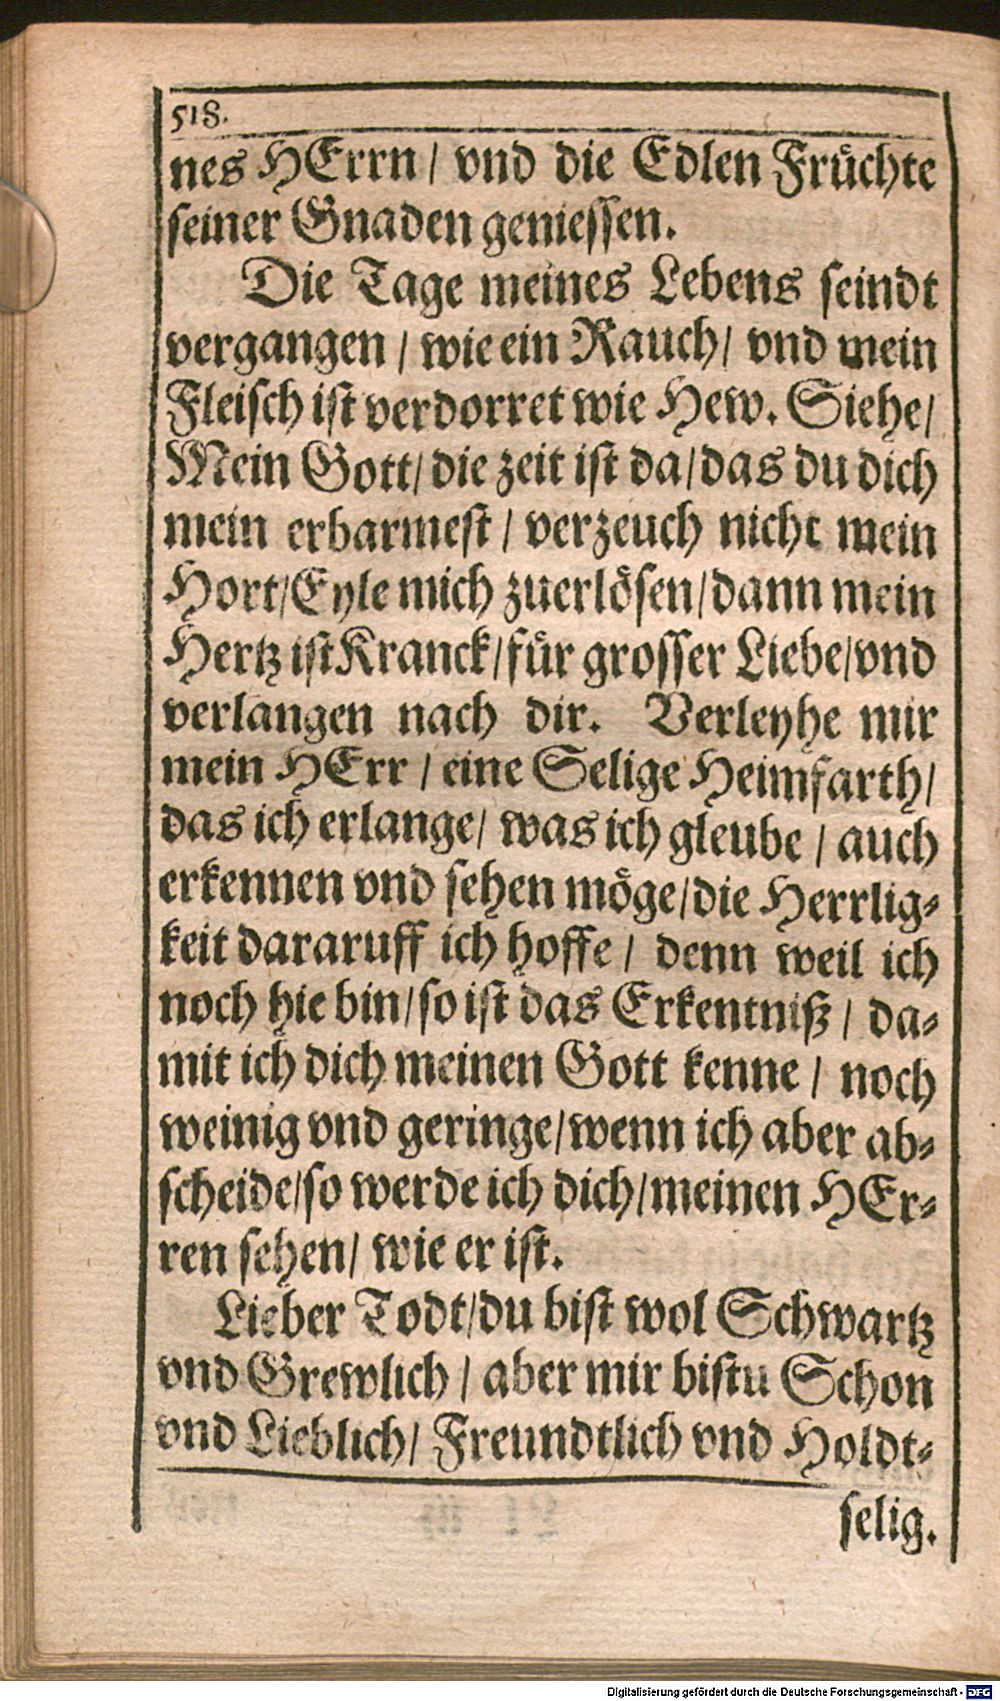 518.
nes HErrn / vnd die Edlen Früchte
seiner Gnaden geniessen.
Die Tage meines Lebens seindt
vergangen / wie ein Rauch / vnd mein
Fleisch ist verdorret wie Hew. Siehe /
Mein Gott / die zeit ist da / das du dich
mein erbarmest / verzeuch nicht mein
Hort / Eyle mich zuerlösen / dann mein
Hertz ist Kranck / für grosser Liebe / vnd
verlangen nach dir. Verleyhe mir
mein HErr / eine Selige Heimfarth /
das ich erlange / was ich gleube / auch
erkennen vnd sehen möge / die Herrlig-
keit dararuff ich hoffe / denn weil ich
noch hie bin / so ist das Erkentniß / da-
mit ich dich meinen Gott kenne / noch
weinig vnd geringe / wenn ich aber ab-
scheide / so werde ich dich / meinen HEr-
ren sehen / wie er ist.
Lieber Todt / du bist wol Schwartz
vnd Grewlich / aber mir bistu Schon
vnd Lieblich / Freundtlich vnd Holdt-
selig.
Digitalisierung gefördert durch die Deutsche Forschungsgemeinschaft - DFG